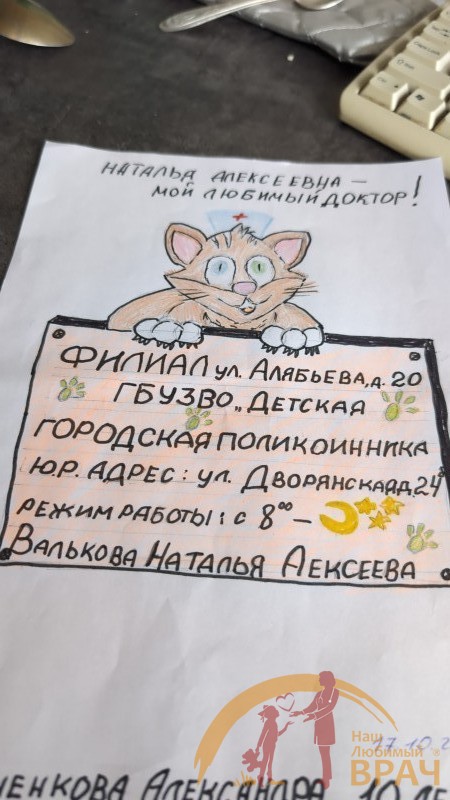 НАТАЛЬЯ АЛЕКСЕЕВНА —
МОЙ ЛЮБИМЫЙ ДОКТОР!
ФИЛИАЛ ул. АЛЯБЬЕВА, д. 20
ГБУЗВО „ДЕТСКАЯ
ГОРОДСКАЯ ПОЛИКОИННИКА
Ю.Р. АДРЕС: ул. ДВОРЯНСКАЯ Д, 24
РЕЖИМ РАБОТЫ: с 8⁰⁰ –
ВАЛЬКОВА НАТАЛЬЯ АЕКСЕЕВА
Наш
Любимый
ВРАЧ
ЕНКОВА АЛЕКСАНДРА 10 ЛЕ